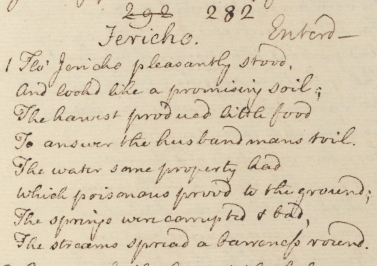 292 282
Jericho. Enterd—
1 Tho' Jericho pleasantly stood,
And look'd like a promising soil;
The harvest produced little food
To answer the husbandmans toil.
The water some property had
Which poisonous prov'd to the ground;
The springs were corrupted & bad,
The streams spread a barrenness round.